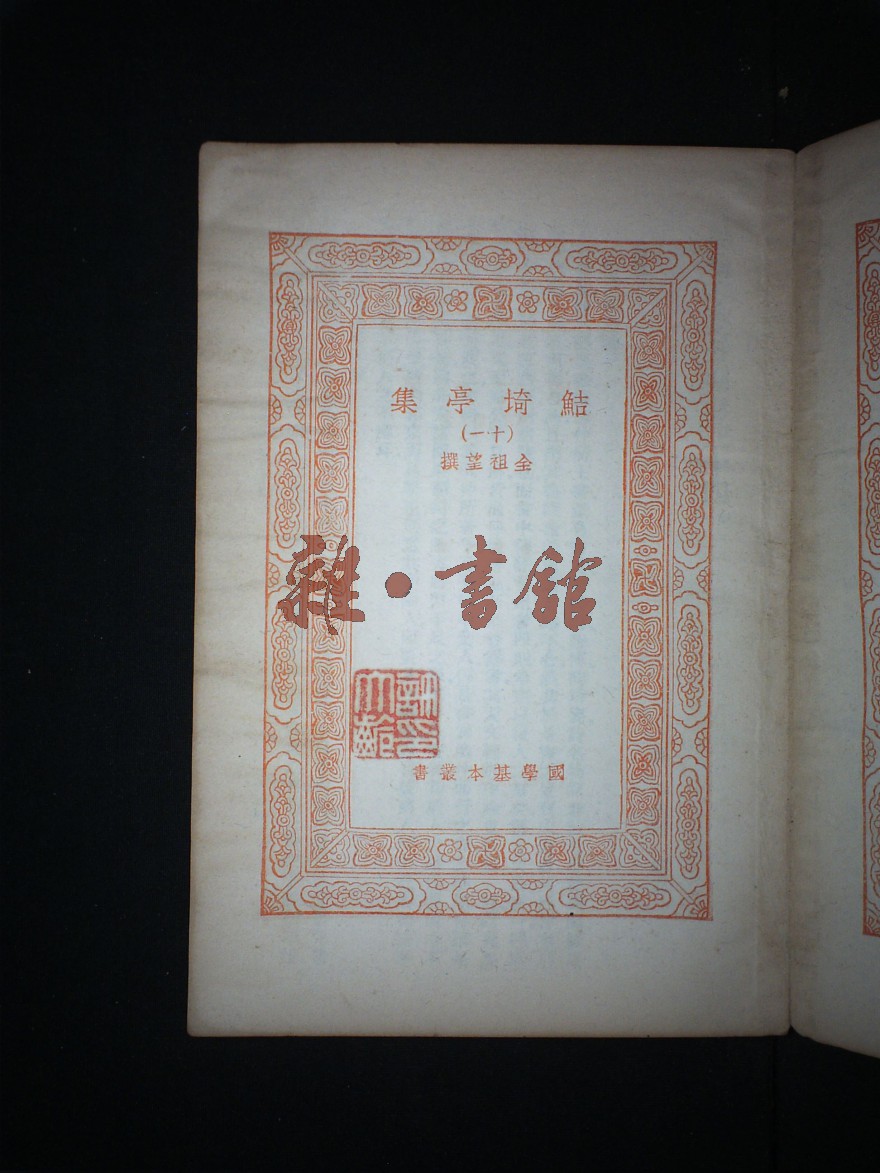 鮚埼亭集
(十一)
全祖望撰
雜·書館
許印
大齡
國學基本叢書